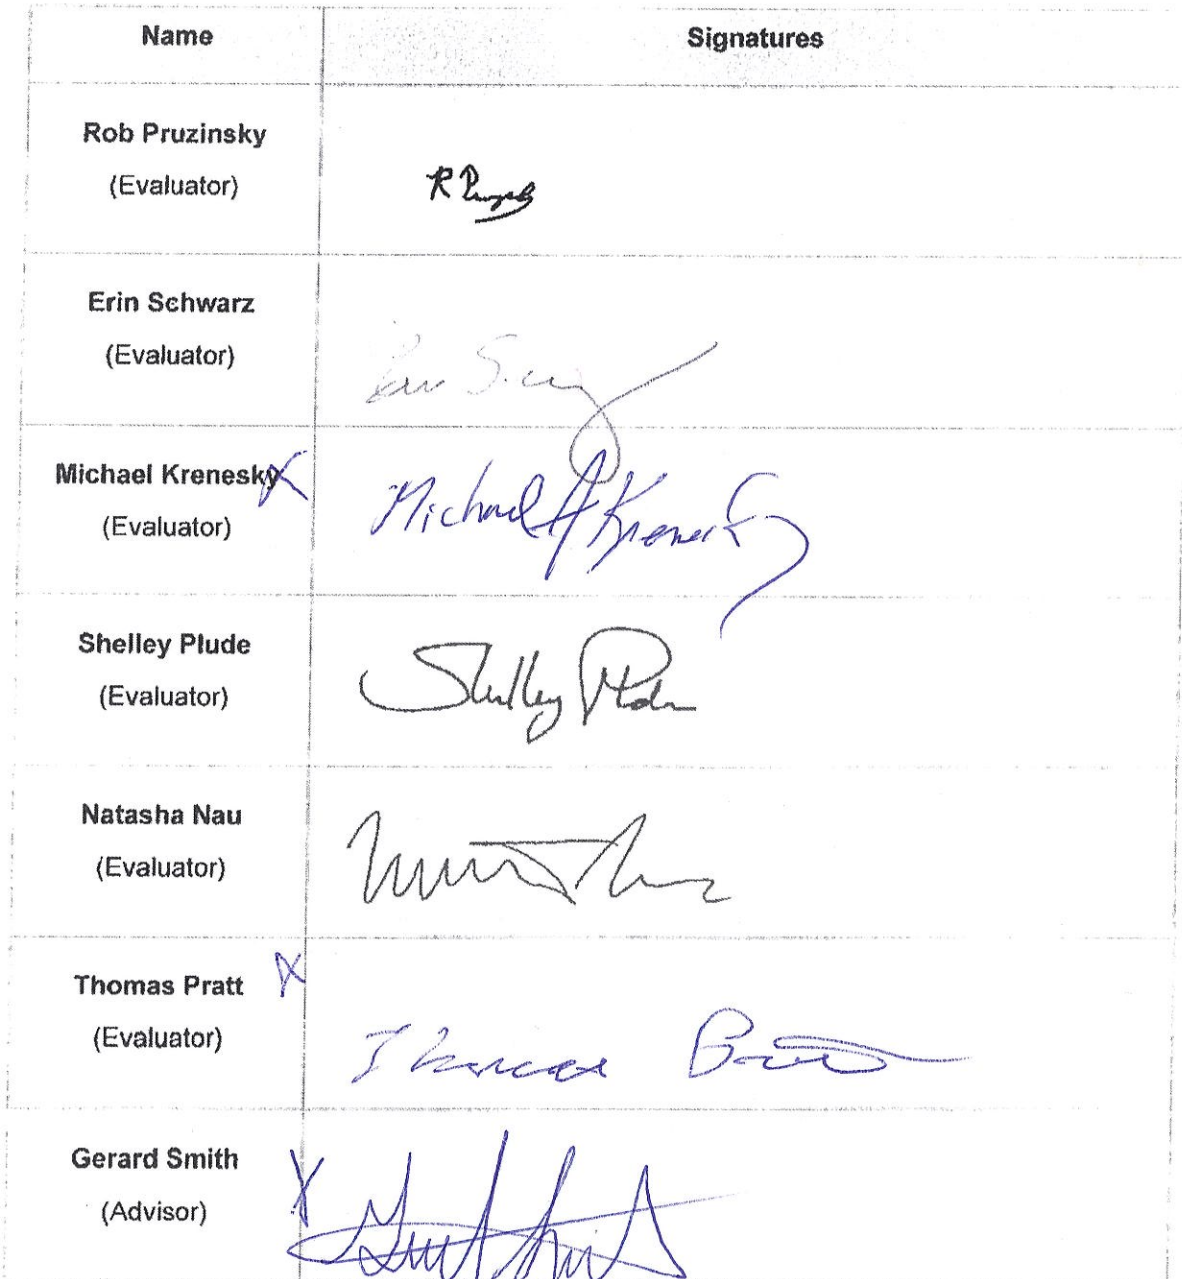 Name Signatures
Rob Pruzinsky
(Evaluator)
Erin Schwarz
(Evaluator)
Michael Krenesky
(Evaluator)
Michael J Krenesky
Shelley Plude
(Evaluator)
Shelley Plude
Natasha Nau
(Evaluator)
Thomas Pratt
(Evaluator)
Thomas Pratt
Gerard Smith
(Advisor)